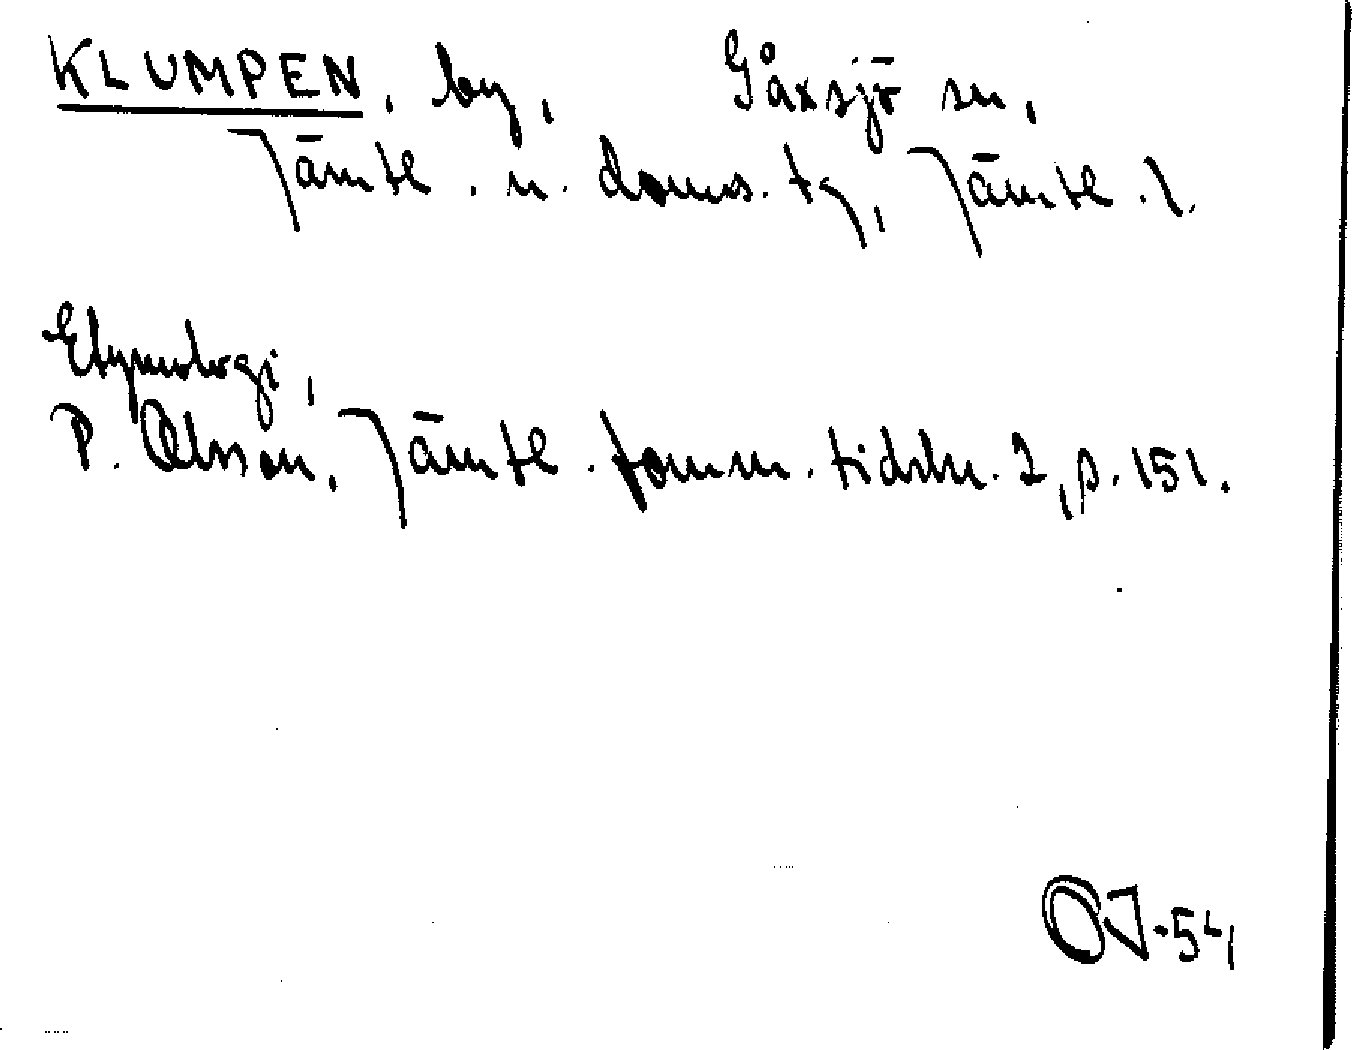 KLUMPEN, by, Gåxsjö sn,
Jämtl. n. doms. tg, Jämtl. l.
Etymologi,
P. Olsson, Jämtl. fornm. tidskr. 2, s. 151.
OJ-54